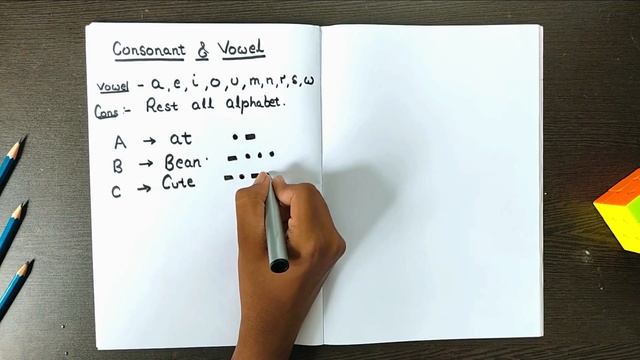 Consonant & Vowel
Vowel - a, e, i, o, u, m, n, r, s, w
Cons:- Rest all alphabet.
A → at • -
B → Bean. - • • •
C → Cute - • -